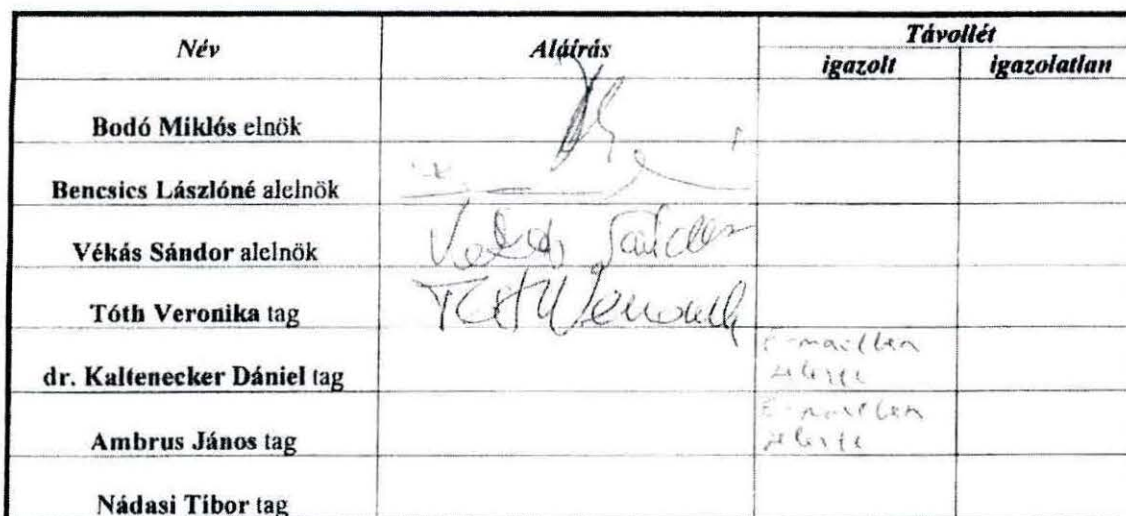 Név Aláírás Távollét
igazolt igazolatlan
Bodó Miklós elnök
Bencsics Lászlóné alelnök
Vékás Sándor alelnök Vékás Sándor
Tóth Veronika tag Tóth Veronika
dr. Kaltenecker Dániel tag E-mailben
jelezte
Ambrus János tag E-mailben
jelezte
Nádasi Tibor tag